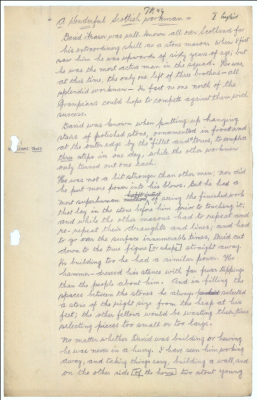 7K49
A Wonderful Scottish workman - English
David Fraser was well known all over Scotland for
his extraordinary skill as a stone mason. When I first
saw him he was upwards of sixty years of age, but
he was the most active man in the squad. He was
at this time, the only one left of three brothers - all
splendid workmen - In fact no one north of the
Grampians could hope to compete against them with
success.
David was known when putting up hanging
stairs of polished stone, ornamented in front and
at the outer edge by the "fillet and torus", to complete
three steps in one day, while the other workmen
only turned out one each.
He was not a bit stronger than other men, nor did
he put more force into his blows, but he had a
most superhuman of seeing the finished work
that lay in the stone before him prior to touching it;
and while the other masons had to repeat and
re-repeat their draughts and lines, and had
to go over the surface innumerable times, David cut
down to the true figure (or shape) straight away.
In building too he had a similar power. He
hammer-dressed his stones with far fewer tappings
than the people about him. And in filling the
spaces between the stones he always selected
a stone of the right size from the heap at his
feet; the other fellows would be wasting their time
selecting pieces too small or too large.
No matter whether David was building or hewing
he was never in a hurry. I have seen him working
away, and taking things easy, building a wall, and
on the other side (of the house) two stout young